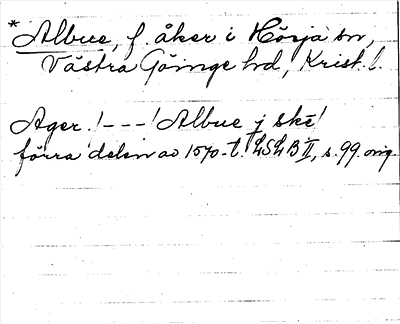 *Albue, f. åker i Hörja sn,
Västra Göinge hd, Krist. l.
Ager! --- ! Albue j skē!
förra delen av 1570-t. LSLB II, s. 99. orig.